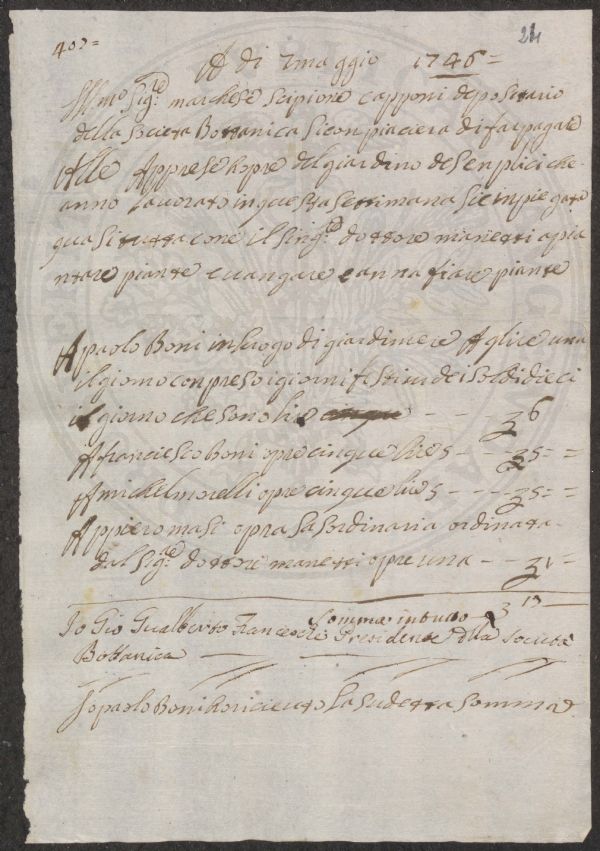 407=
24
A di 7 maggio 1746=
Ill.mo Sig.re marchese Scipione Capponi depositario
della Societa Bottanica si conpiacera di far pagare
Alle Apprese hopre del giardino de Senplici che
anno lavorato in questa settimana si e inpiegata
quasi tutta cone il Sing.re dottore manetti a pia
ntare piante e vangare e annafiare piante
A paolo Boni in luogo di giardiniere A lire una
il giorno conpreso i giorni festivi de i soldi dieci
il giorno che sono lire cinque - - - - 3 6
A franciesco Boni opre cinque lire 5 - - - 35 = =
A michel morelli opre cinque lire 5 - - - 35 = =
A ppiero masi opra sa sordinaria ordinata
dal Sig.re dottore manetti opre una - - 31 - =
Somma in tutto 3 17 —
Io Gio Gualberto Franceschi Presidente della Societa
Bottanica
Io paolo Boni ho riceuto la sudetta somma